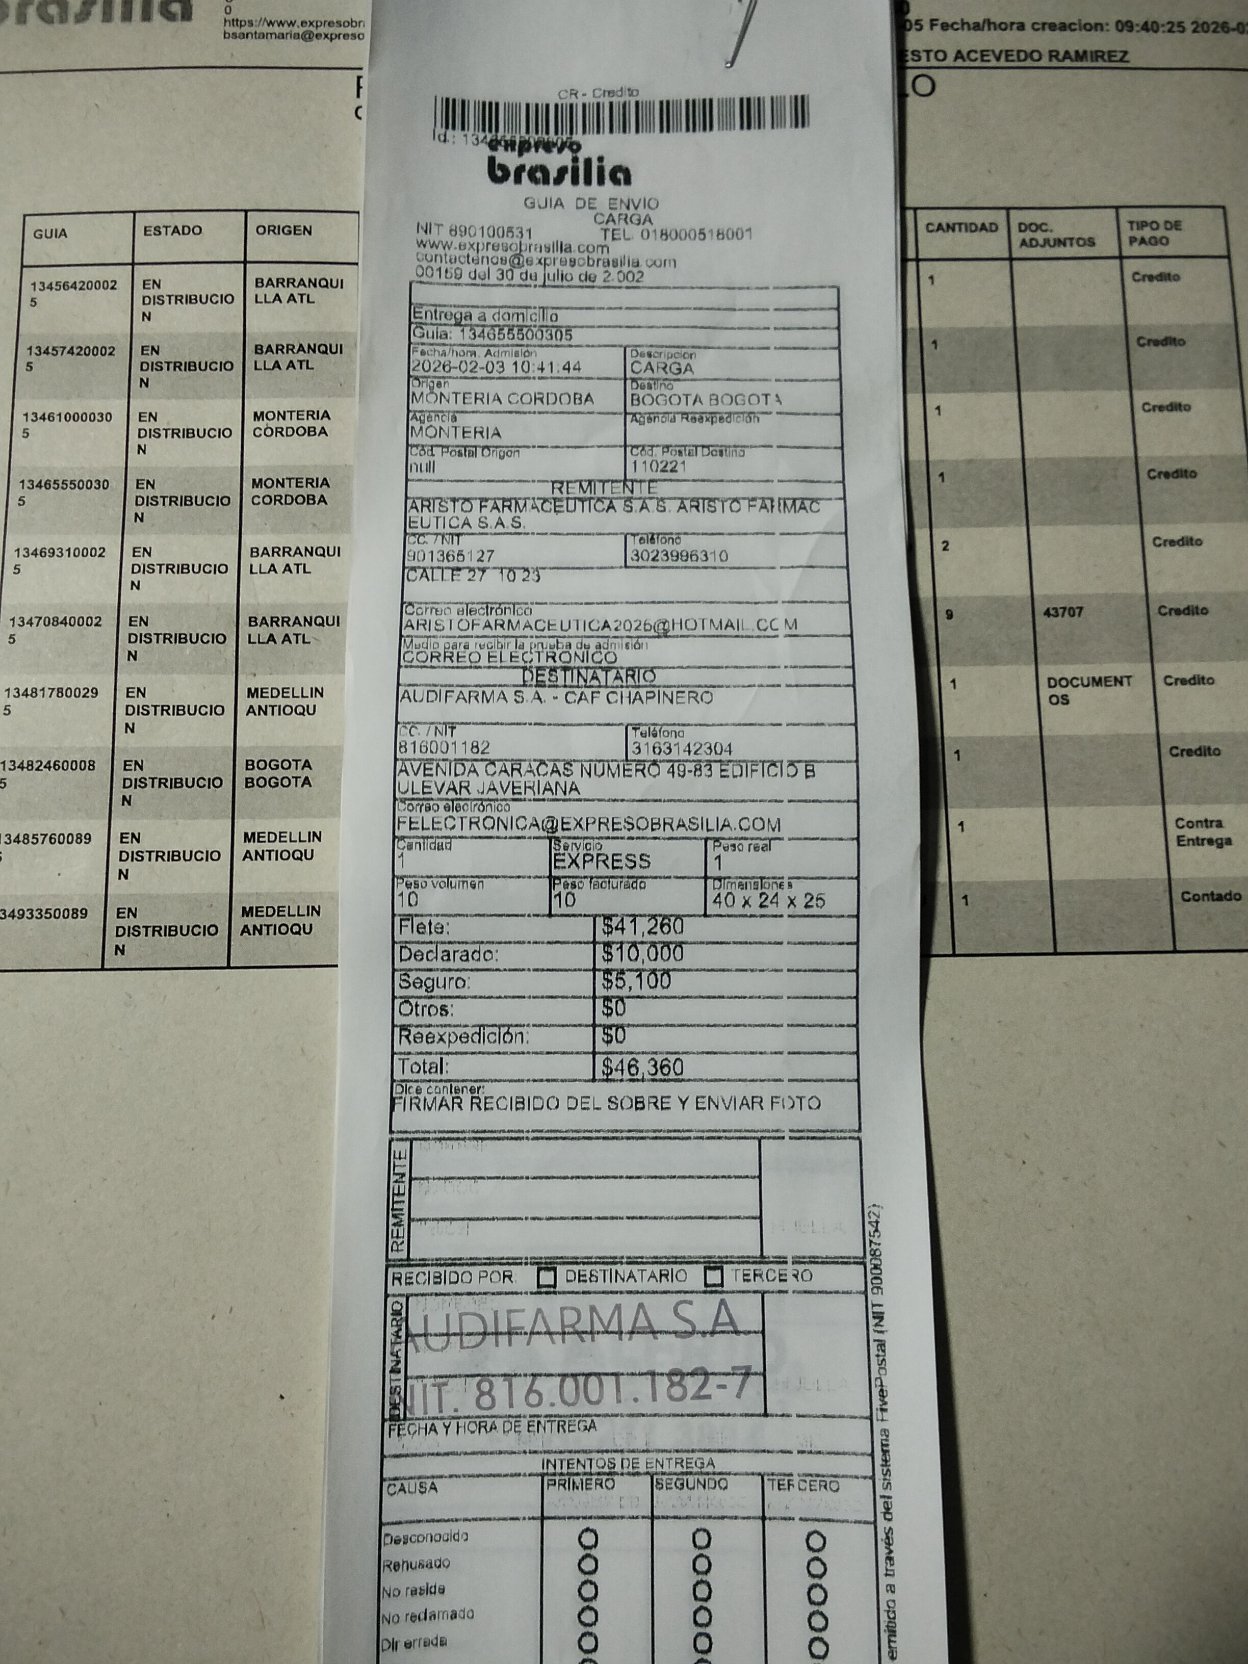 brasilia
0
https://www.expresobr
bsantamaria@expreso
05 Fecha/hora creacion: 09:40:25 2026-0
ESTO ACEVEDO RAMIREZ
LO
GUIA ESTADO ORIGEN
13456420002 EN BARRANQUI
5 DISTRIBUCIO LLA ATL
N
13457420002 EN BARRANQUI
5 DISTRIBUCIO LLA ATL
N
13461000030 EN MONTERIA
5 DISTRIBUCIO CORDOBA
N
13465550030 EN MONTERIA
5 DISTRIBUCIO CORDOBA
N
13469310002 EN BARRANQUI
5 DISTRIBUCIO LLA ATL
N
13470840002 EN BARRANQUI
5 DISTRIBUCIO LLA ATL
N
13481780029 EN MEDELLIN
5 DISTRIBUCIO ANTIOQU
N
13482460008 EN BOGOTA
5 DISTRIBUCIO BOGOTA
N
3485760089 EN MEDELLIN
DISTRIBUCIO ANTIOQU
N
3493350089 EN MEDELLIN
DISTRIBUCIO ANTIOQU
N
CR - Credito
expreso
brasilia
GUIA DE ENVIO
CARGA
NIT 890100531 TEL. 018000518001
www.expresobrasilia.com
contactenos@expresobrasilia.com
00159 del 30 de julio de 2.002
Entrega a domicilio
Guia: 134655500305
Fecha/hora. Admisión Descripcion
2026-02-03 10:41:44 CARGA
Origen Destino
MONTERIA CORDOBA BOGOTA BOGOTA
Agencia Agencia Reexpedición
MONTERIA
Cód. Postal Origen Cód. Postal Destino
null 110221
REMITENTE
ARISTO FARMACEUTICA S.A.S. ARISTO FARMAC
EUTICA S.A.S.
CC. / NIT Teléfono
901365127 3023996310
CALLE 27 10 23
Correo electrónico
ARISTOFARMACEUTICA2026@HOTMAIL.COM
Medio para recibir la prueba de admisión
CORREO ELECTRONICO
DESTINATARIO
AUDIFARMA S.A. - CAF CHAPINERO
CC. / NIT Teléfono
816001182 3163142304
AVENIDA CARACAS NUMERO 49-83 EDIFICIO B
ULEVAR JAVERIANA
Correo electrónico
FELECTRONICA@EXPRESOBRASILIA.COM
Cantidad Servicio Peso real
1 EXPRESS 1
Peso volumen Peso facturado Dimensiones
10 10 40 x 24 x 25
Flete: $41,260
Declarado: $10,000
Seguro: $5,100
Otros: $0
Reexpedición: $0
Total: $46,360
Dice contener:
FIRMAR RECIBIDO DEL SOBRE Y ENVIAR FOTO
REMITENTE
RECIBIDO POR: DESTINATARIO TERCERO
DESTINATARIO
AUDIFARMA S.A
NIT. 816.001.182-7
FECHA Y HORA DE ENTREGA
INTENTOS DE ENTREGA
CAUSA PRIMERO SEGUNDO TERCERO
Desconocido
Rehusado
No reside
No reclamado
Dir errada
emitido a través del sistema FivePostal (NIT 900087542)
CANTIDAD DOC. ADJUNTOS TIPO DE PAGO
1 Credito
1 Credito
1 Credito
1 Credito
2 Credito
9 43707 Credito
1 DOCUMENT Credito
OS
1 Credito
1 Contra
Entrega
1 Contado